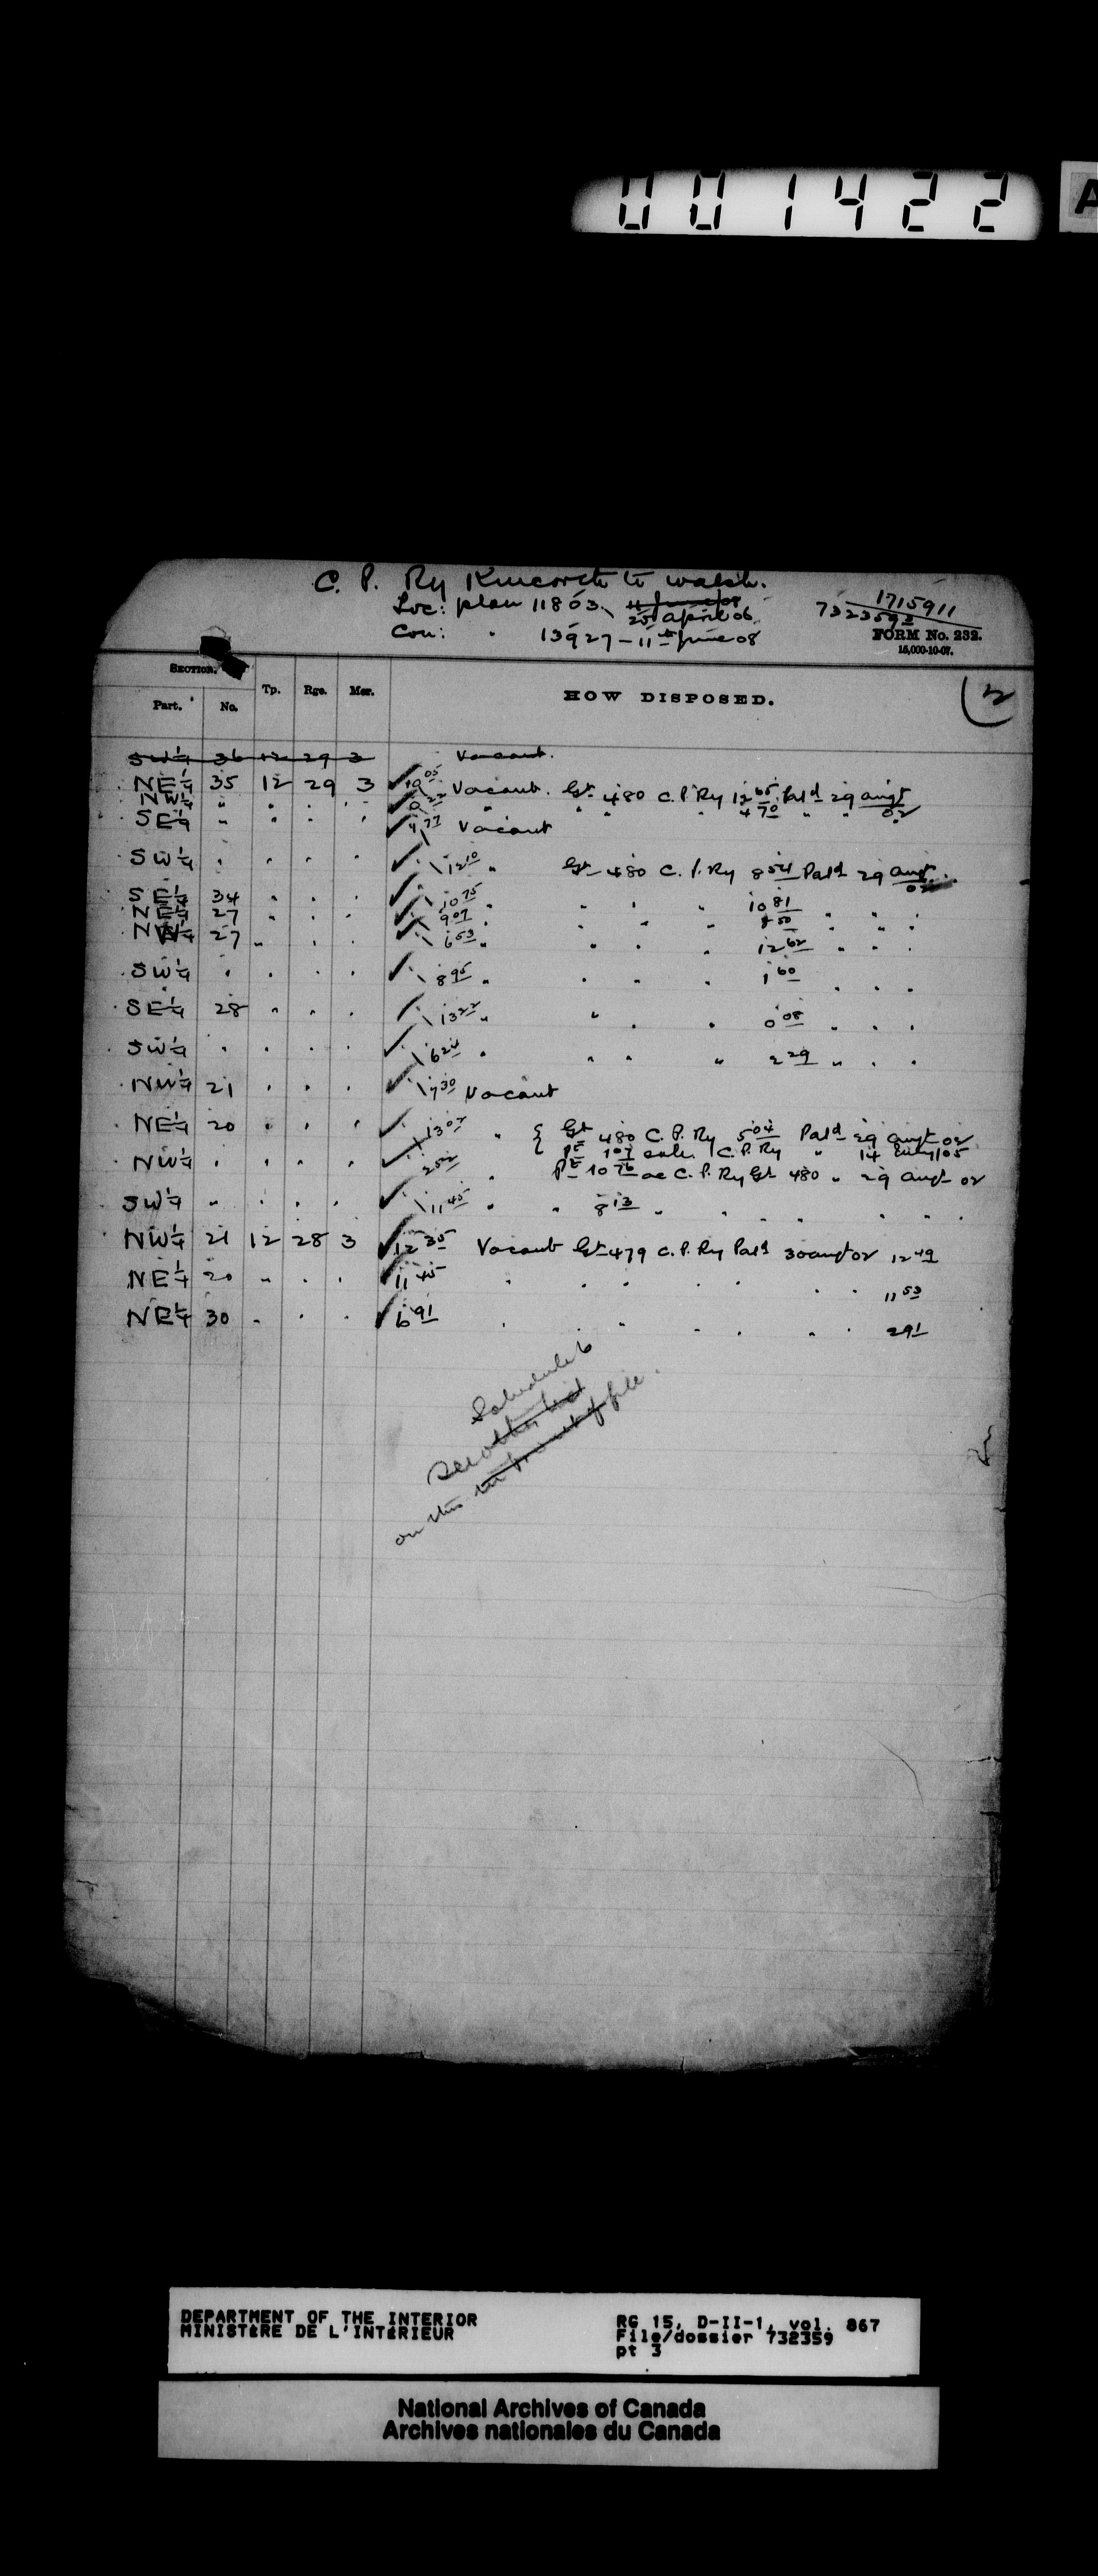 001422
A
C. P. Ry Kincorth to Walsh.
Loc: plan 11803. 25 April 06
1715911
732359
Con: " 13927 - 11th June 08
FORM No. 232.
15,000-10-07.
SECTION.
Part. No. Tp. Rge. Mer. HOW DISPOSED.
2
SW¼ 36 12 29 3 Vacant.
NE¼ 35 12 29 3 Vacant. Gt 480 C.P. Ry 12 65 Patd 29 augt 02
NW¼ " " " " " " " " 4 70 " "
SE¼ " " " " 4 77 Vacant
SW¼ " " " " 12 10 " Gt 480 C.P. Ry 8 54 Patd 29 augt 02
SE¼ 34 " " " 10 75 " " " " 10 81 " " "
NE¼ 27 " " " 9 07 " " " " 8 50 " " "
NW¼ 27 " " " 6 53 " " " " 12 62 " " "
SW¼ " " " " 8 95 " " " " 1 60 " " "
SE¼ 28 " " " 13 22 " " " " 0 08 " " "
SW¼ " " " " 6 24 " " " " 2 29 " " "
NW¼ 21 " " " 7 30 Vacant
NE¼ 20 " " " 13 07 " { Gt 480 C. P. Ry 5 04 Patd 29 augt 02
Pt 107 sale C.P. Ry " 14 05
NW¼ " " " " 25 2 " Pt 10 76 ac C. P. Ry Gt 480 " 29 augt 02
SW¼ " " " " 11 45 " " 8 13 " " " " " " "
NW¼ 21 12 28 3 12 35 Vacant Gt 479 C. P. Ry Patd 30 augt 02 12 49
NE¼ 20 " " " 11 45 " " " " " " 11 53
NE¼ 30 " " " 6 91 " " " " " " 2 91
Schedule 6
See other list
on this in front of file.
DEPARTMENT OF THE INTERIOR
MINISTÈRE DE L'INTÉRIEUR
RG 15, D-II-1, vol. 867
File/dossier 732359
pt 3
National Archives of Canada
Archives nationales du Canada